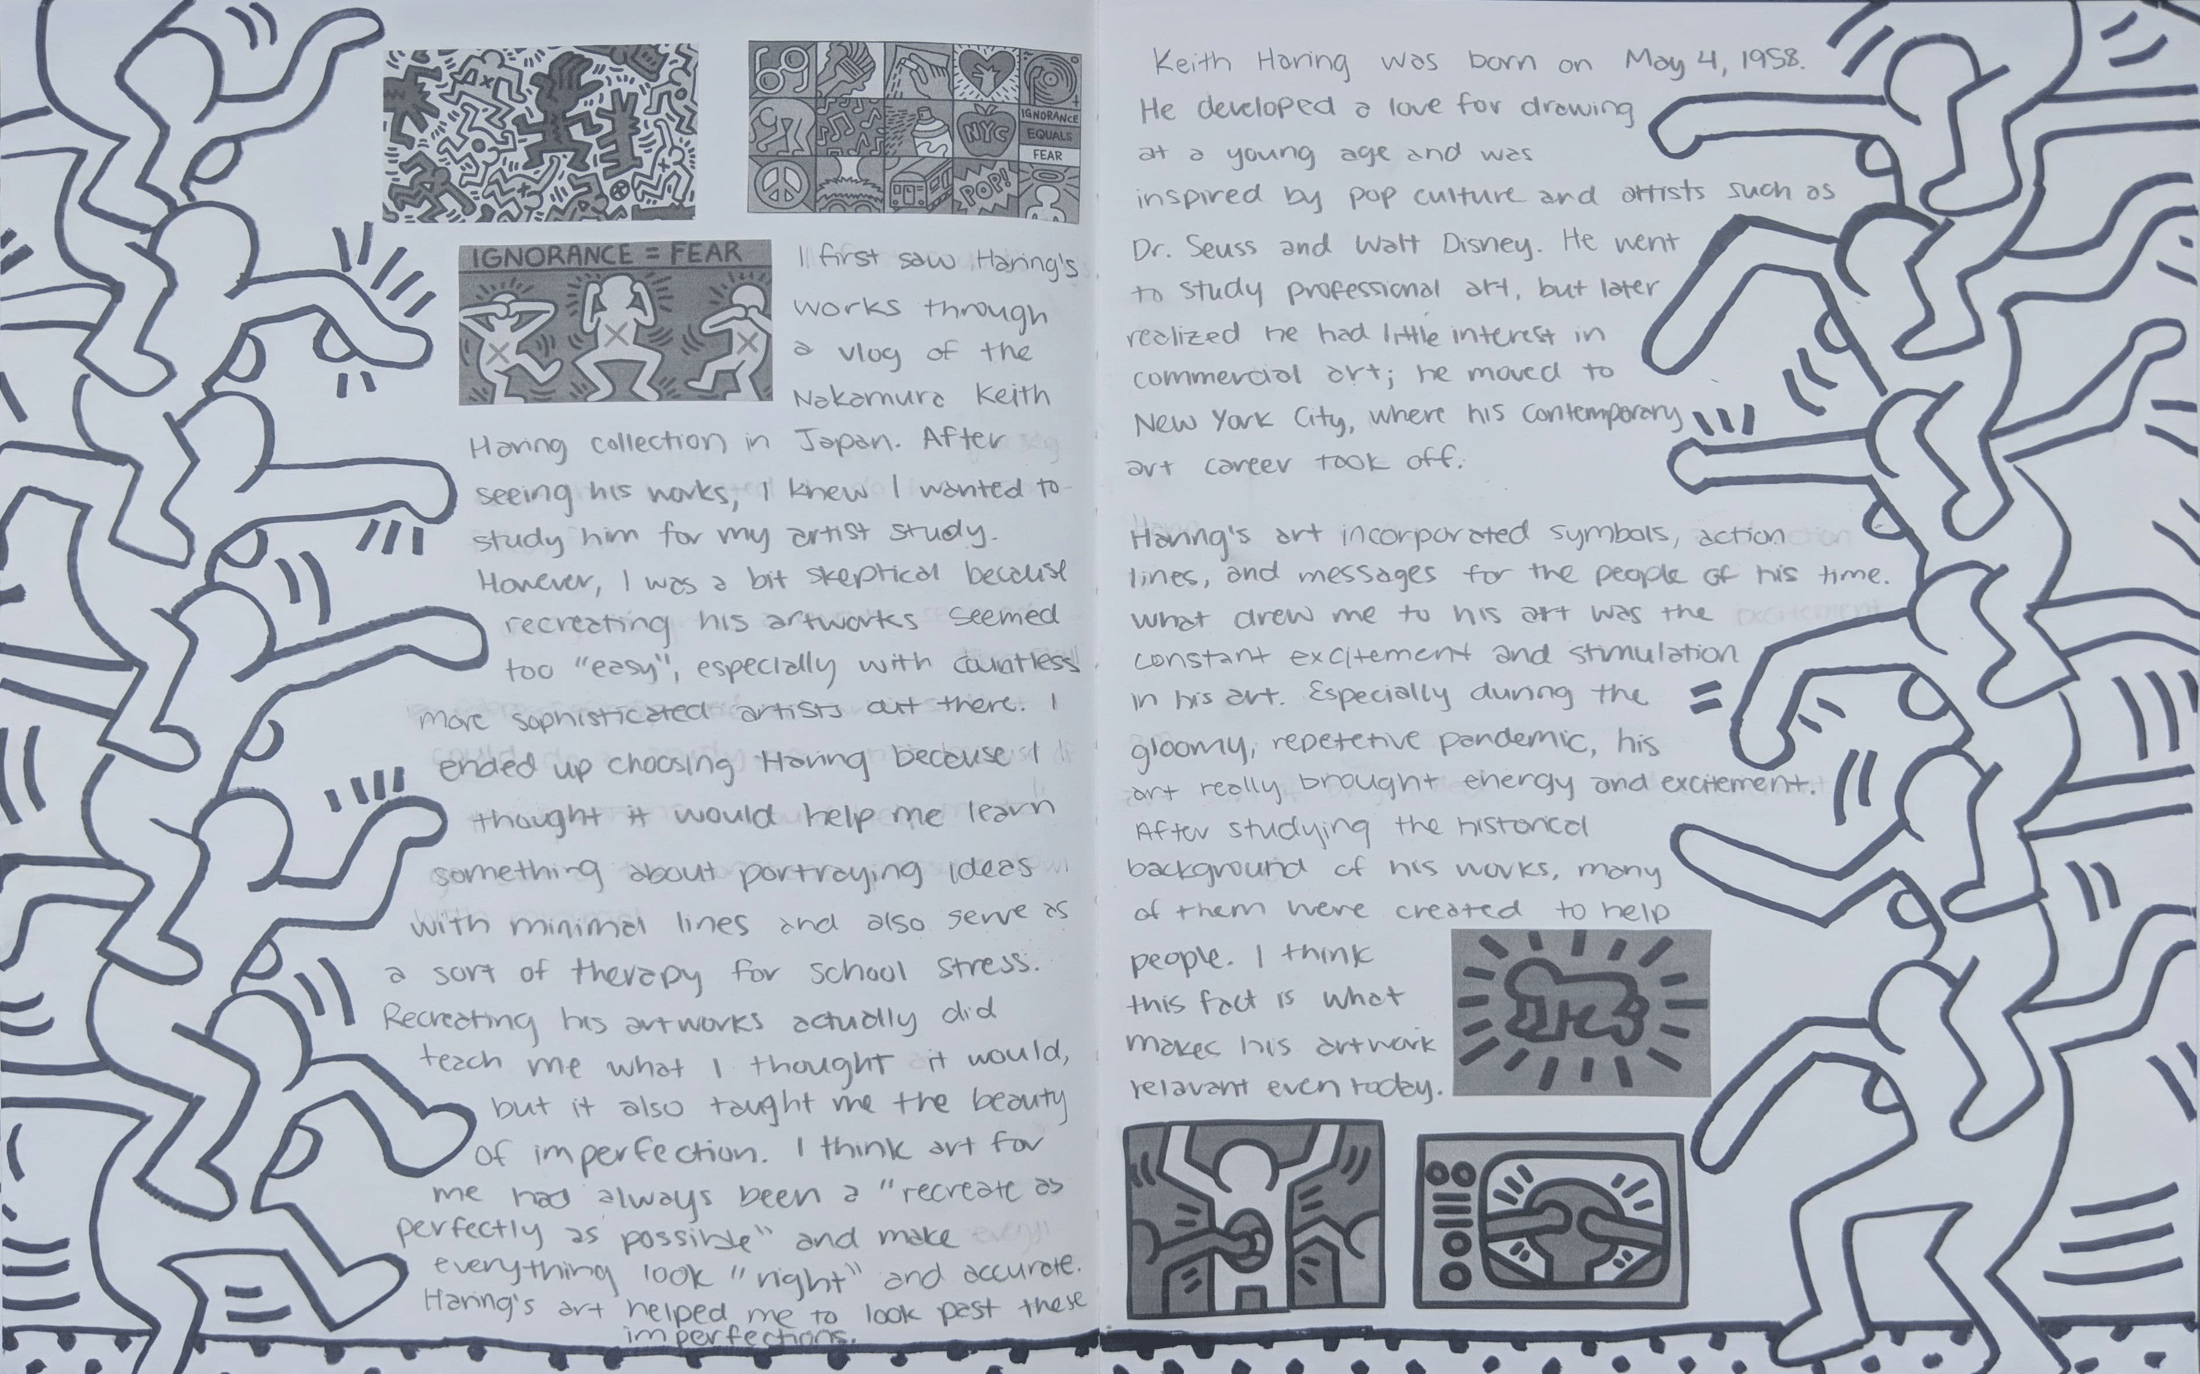 69
NYC
IGNORANCE
EQUALS
FEAR
POP!
IGNORANCE = FEAR
I first saw Haring's
works through
a vlog of the
Nakamura Keith
Haring collection in Japan. After
seeing his works, I knew I wanted to
study him for my artist study.
However, I was a bit skeptical because
recreating his artworks seemed
too "easy", especially with countless
more sophisticated artists out there. I
ended up choosing Haring because I
thought it would help me learn
something about portraying ideas
with minimal lines and also serve as
a sort of therapy for school stress.
Recreating his artworks actually did
teach me what I thought it would,
but it also taught me the beauty
of imperfection. I think art for
me had always been a "recreate as
perfectly as possible" and make
everything look "right" and accurate.
Haring's art helped me to look past these
imperfections.
Keith Haring was born on May 4, 1958.
He developed a love for drawing
at a young age and was
inspired by pop culture and artists such as
Dr. Seuss and Walt Disney. He went
to study professional art, but later
realized he had little interest in
commercial art; he moved to
New York City, where his contemporary
art career took off.
Haring's art incorporated symbols, action
lines, and messages for the people of his time.
What drew me to his art was the
constant excitement and stimulation
in his art. Especially during the
gloomy, repetetive pandemic, his
art really brought energy and excitement.
After studying the historical
background of his works, many
of them were created to help
people. I think
this fact is what
makes his artwork
relavant even today.